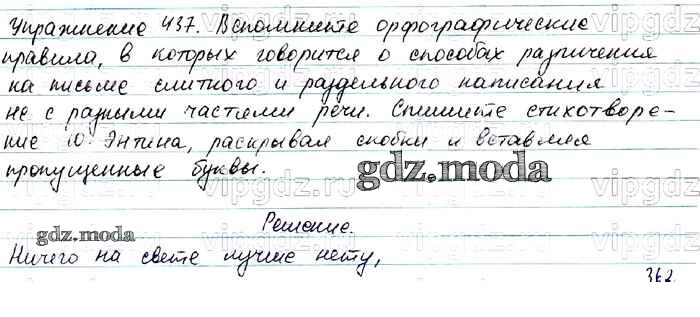 Упражнение 437. Вспомните орфографические
правила, в которых говорится о способах различения
на письме слитного и раздельного написания
не с разными частями речи. Спишите стихотворе-
ние Ю. Энтина, раскрывая скобки и вставляя
пропущенные буквы.
gdz.moda
Решение.
gdz.moda
Ничего на свете лучше нету,
362